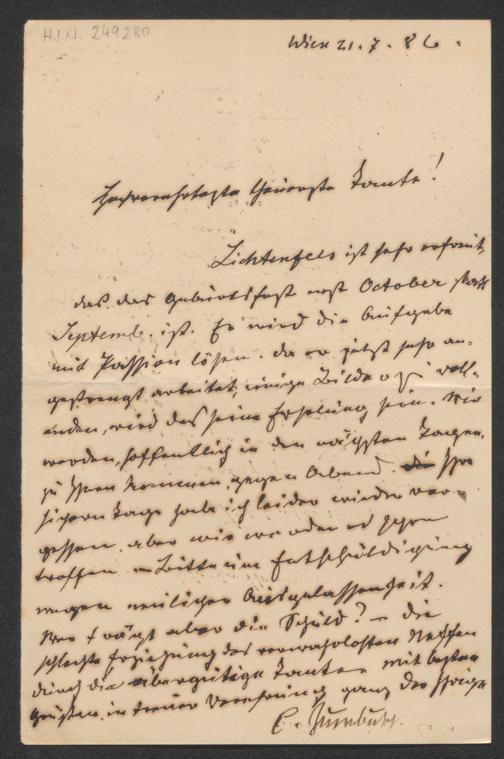 H.I.N. 249280
Wien 21.7.86.
Hochverehrteste theuerste Tante!
Lichtenfels ist sehr erfreut,
das das Geburtsfest erst October statt
September ist. Er wird die Aufgabe
mit Passion lösen. da er jetzt sehr an-
gestrengt arbeitet, einige Bilder zu voll-
enden, wird das seine Erholung sein. Wir
werden, hoffentlich in den nächsten Tagen.
zu Ihnen kommen gegen Abend. Ihre
sichern Tage habe ich leider wieder ver-
gessen. aber wir werden es schon
treffen – Bitte um Entschuldigung
wegen neulicher Ausgelassenheit.
Wer trägt aber die Schuld? – die
schlechte Erziehung des verwahrlosten Neffen
durch die übergütige Tante – mit besten
Grüßen, in treuer Verehrung ganz der Ihrige